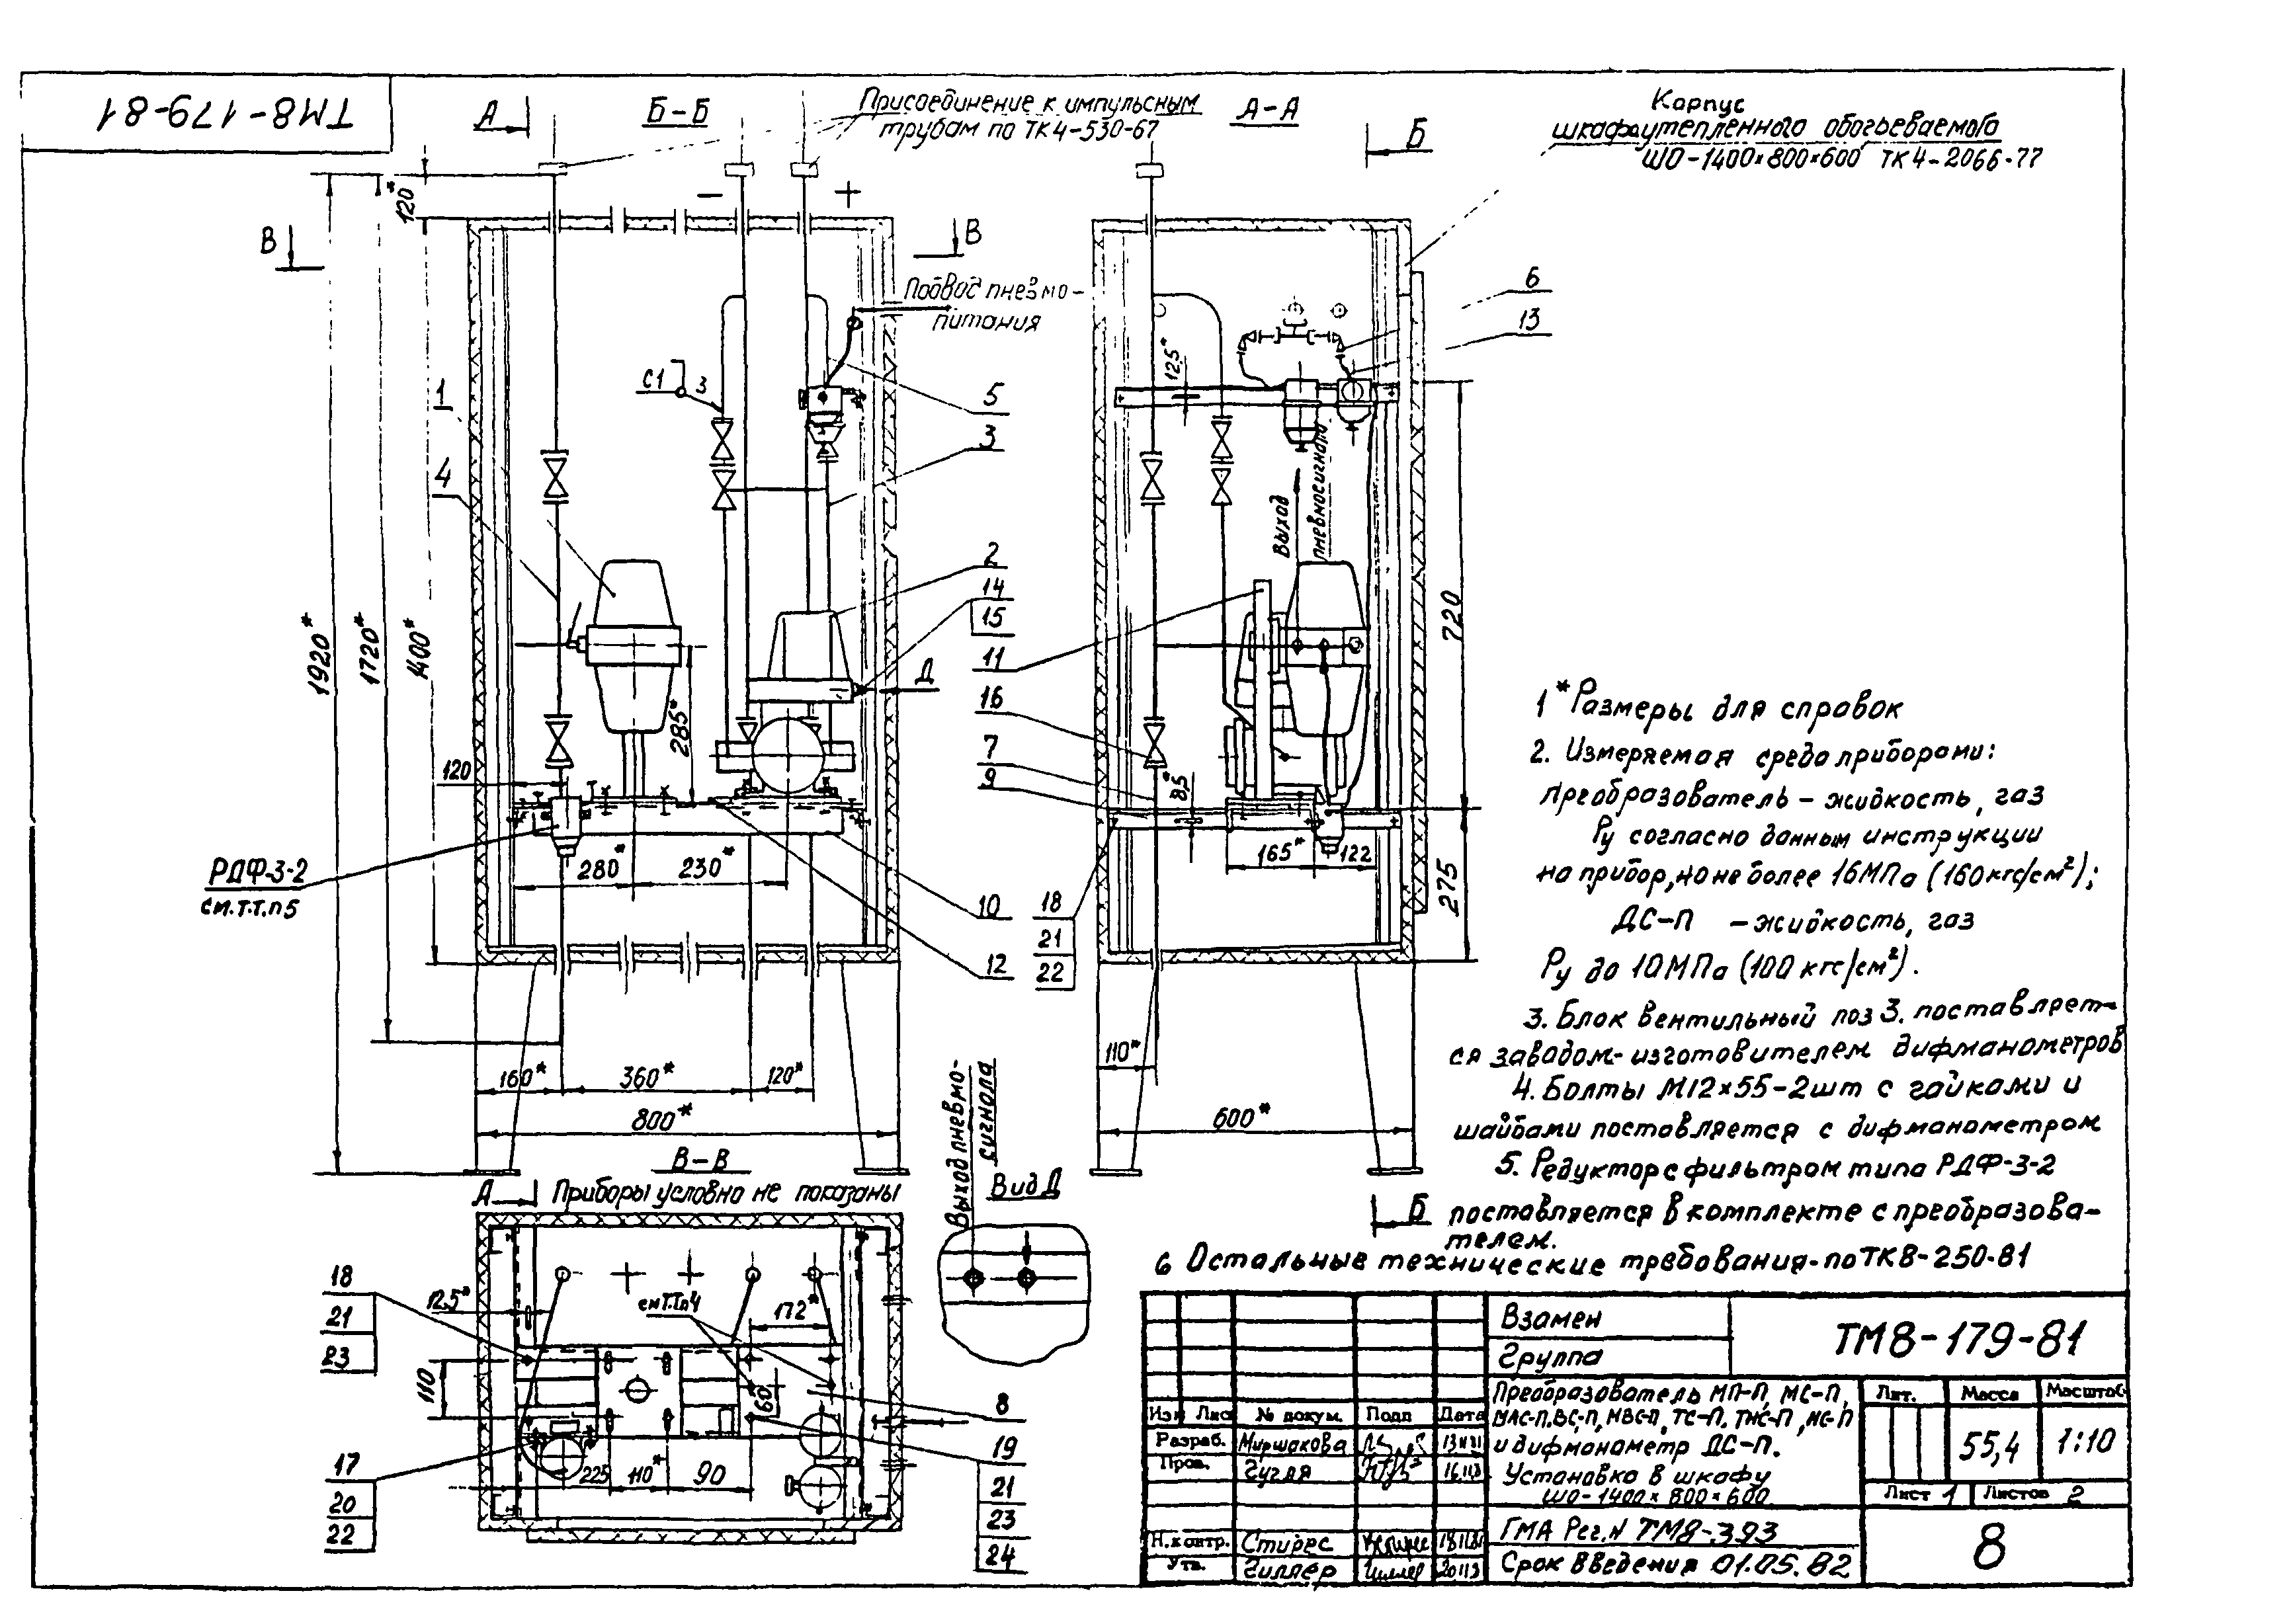 ТМ8-179-81
А
Б-Б
Присоединение к импульсным
трубам по ТК4-530-67
А-А
Б
Корпус
шкафа утепленного обогреваемого
ШО-1400×800×600 ТК4-2066-77
120*
−
+
В
В
Подвод пневмо-
питания
6
13
С1
3
12,5*
1
5
3
4
Выход
пневмосигнала
2
14
15
11
Д
16
7
9
1920*
1720*
1400*
285*
120
8,5*
720
275
165*
122
РДФ-3-2
см.т.т.п5
280*
230*
10
12
18
21
22
160*
360*
120*
800*
110*
600*
1 *Размеры для справок
2. Измеряемая среда приборами:
преобразователь – жидкость, газ
Ру согласно данным инструкции
на прибор, но не более 16МПа (160кгс/см²);
ДС-П – жидкость, газ
Ру до 10МПа (100 кгс/см²).
3. Блок вентильный поз 3. поставляет-
ся заводом-изготовителем дифманометров
4. Болты М12×55-2шт с гайками и
шайбами поставляется с дифманометром
5. Редуктор с фильтром типа РДФ-3-2
поставляется в комплекте с преобразова-
телем.
6 Остальные технические требования-по ТК8-250-81
В-В
А
Приборы условно не показаны
Выход пневмо-
сигнала
Вид Д
Б
18
21
23
12,5*
см Т.Тп4
172*
110
60
8
19
21
23
24
17
20
22
225
110*
90
Взамен
Группа
ТМ8-179-81
Преобразователь МП-П, МС-П,
МАС-П, ВС-П, МВС-П, ТС-П, ТНС-П, НС-П
и дифманометр ДС-П.
Установка в шкафу
ШО-1400×800×600
Лит.
Масса
Масштаб
55,4
1:10
Лист 1
Листов 2
Изм Лис
№ докум.
Подп
Дата
Разраб.
Миршакова
Пров.
Гугля
Н.контр.
Стирес
Утв.
Гиллер
ГМА Рег.N ТМ8-393
Срок введения 01.05.82
8